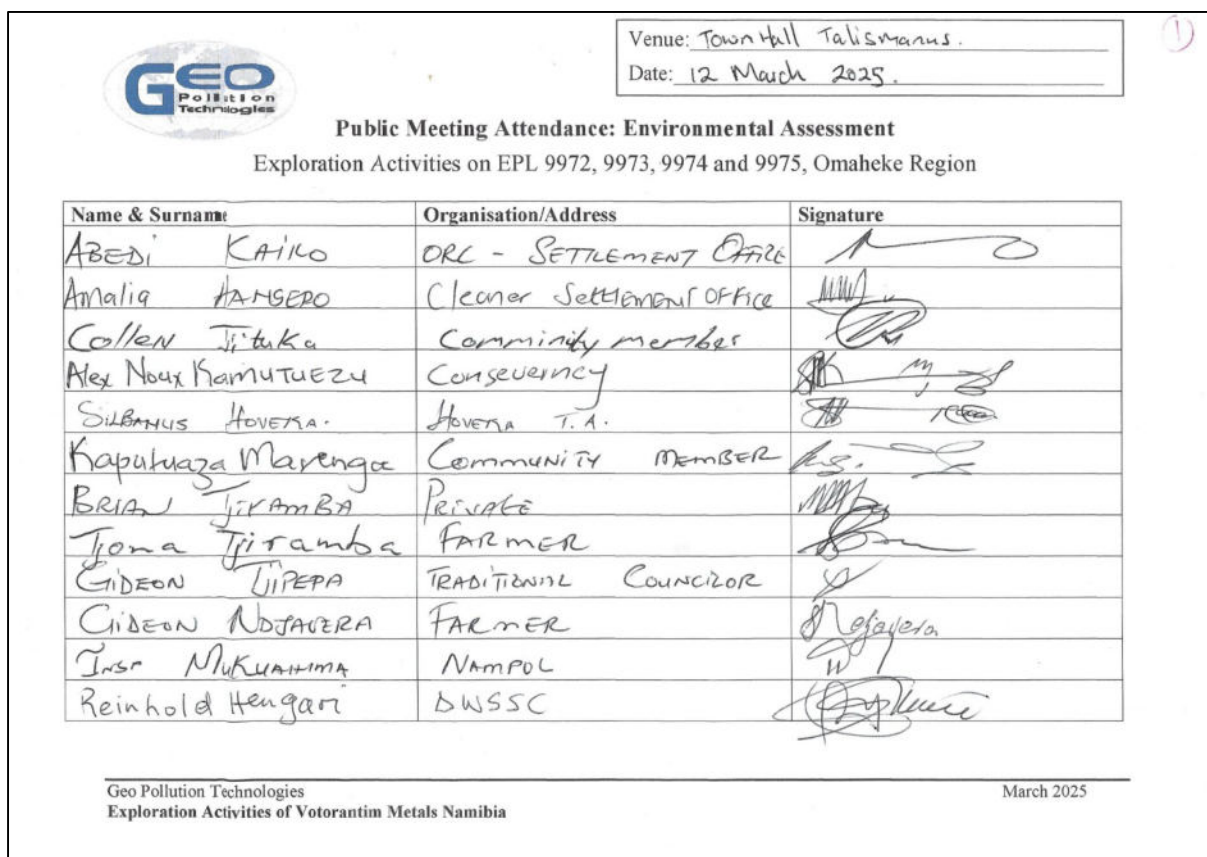 Venue: Town Hall Talismanus.
Date: 12 March 2025.
1
GEO
Pollution
Technologies
Public Meeting Attendance: Environmental Assessment
Exploration Activities on EPL 9972, 9973, 9974 and 9975, Omaheke Region
Name & Surname Organisation/Address Signature
ABEDi KAIKO ORC - SETTLEMENT OFFICE
Amalia HANGERO Cleaner Settlement Office
Collen Tjituka Comminity member
Alex Noux KAMUTUEZU Conseverncy
SILBANUS HOVEKA. HOVEKA T.A.
Kaputuaza Marenga COMMUNITY MEMBER
BRIAN TJIRAMBA PRIVATE
Tjoma Tjiramba FARMER
GIDEON TJIPEPA TRADITIONAL COUNCILOR
GIDEON NDJAVERA FARMER Ndjavera
INSP MUKUAHIMA NAMPOL
Reinhold Hengari DWSSC
Geo Pollution Technologies March 2025
Exploration Activities of Votorantim Metals Namibia